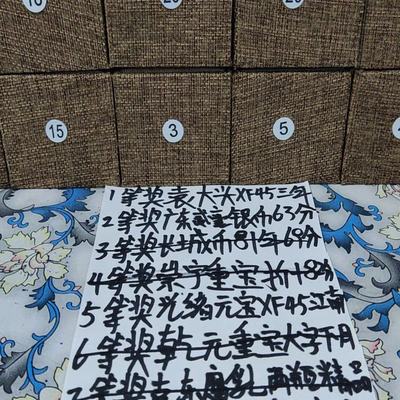 15 3 5
1等奖袁大头XF45三年
2等奖广东 银币63分
3等奖长城币81年69分
4等奖崇宁重宝折十80分
5等奖光绪元宝XF45江南
6等奖乾元重宝大字下月
7等奖 东 两